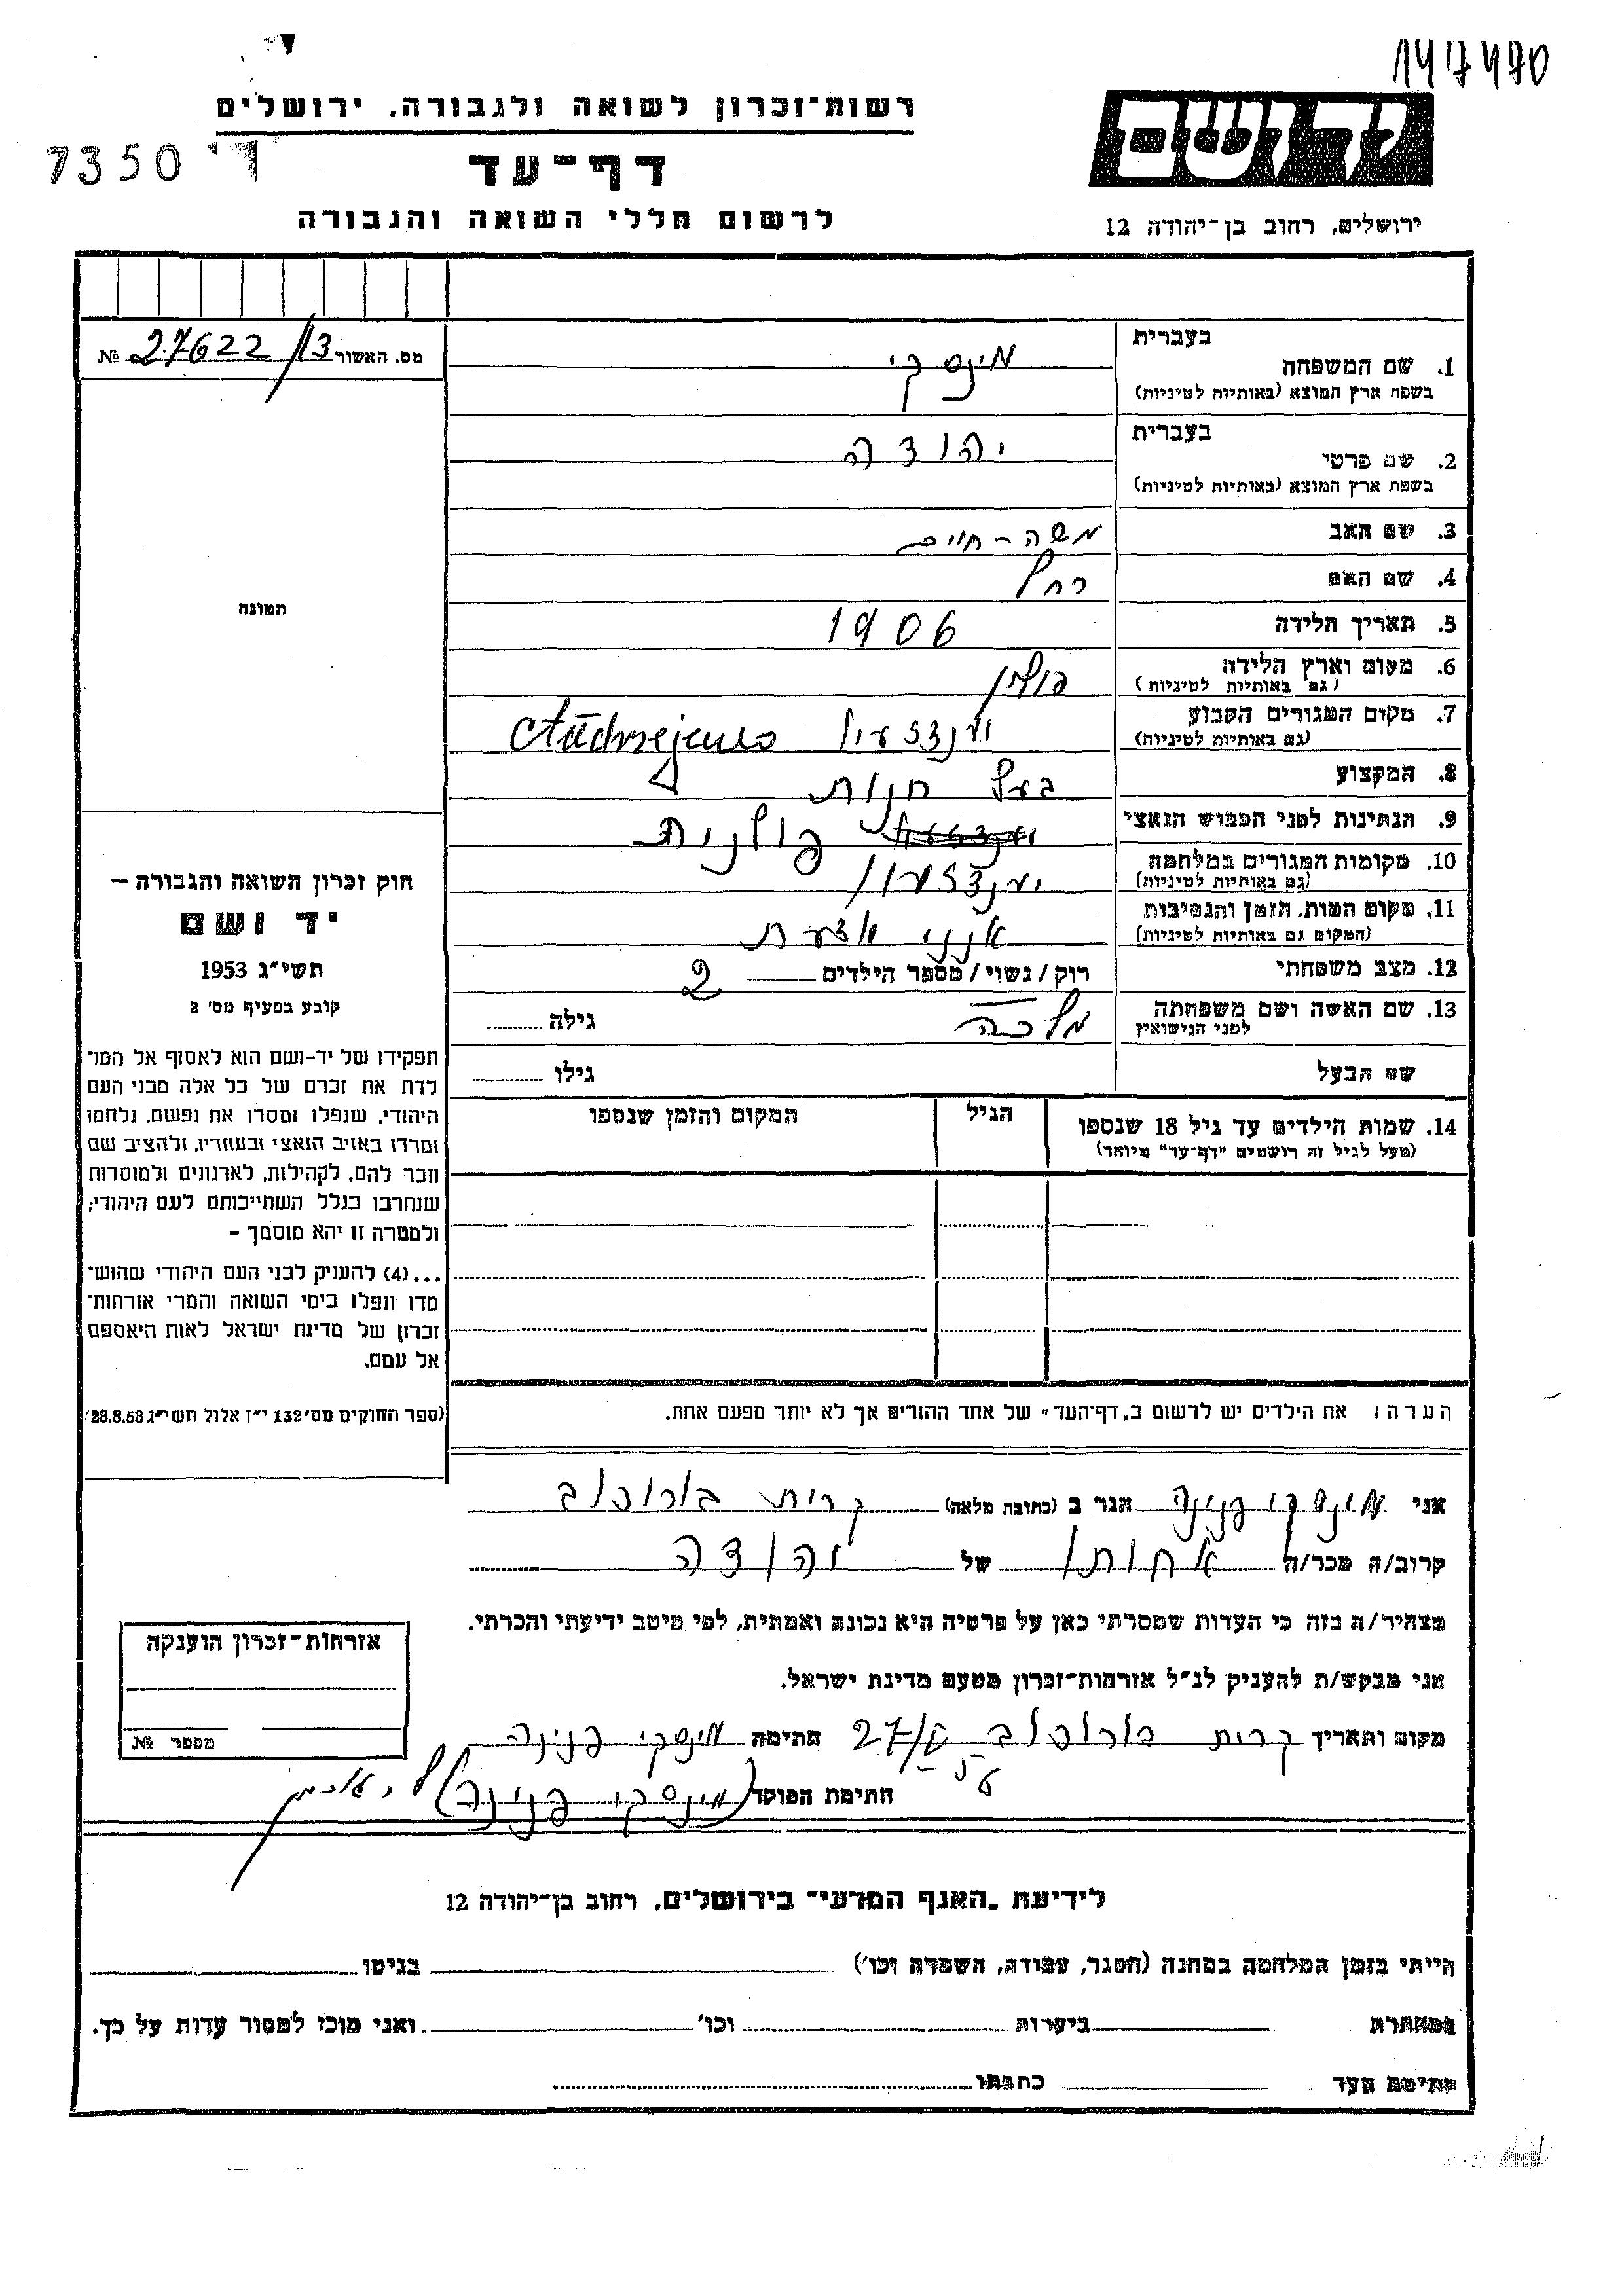 147470
רשות־זכרון לשואה ולגבורה, ירושלים
יד ושם
7350 ד'
דף־עד
לרשום חללי השואה והגבורה
ירושלים, רחוב בן־יהודה 12
מס. האשור 27622/13 №
בעברית
1. שם המשפחה מינסקי
בשפת ארץ המוצא (באותיות לטיניות)
בעברית
2. שם פרטי יהודה
בשפת ארץ המוצא (באותיות לטיניות)
3. שם האב משה - חיים
4. שם האם רחל
5. תאריך הלידה 1906
6. מקום וארץ הלידה פולין
(גם באותיות לטיניות)
7. מקום המגורים הקבוע
(גם באותיות לטיניות)
8. המקצוע בעל חנות
9. הנתינות לפני הכבוש הנאצי פולנית
10. מקומות המגורים במלחמה
(גם באותיות לטיניות)
11. מקום המות, הזמן והנסיבות
(המקום גם באותיות לטיניות)
12. מצב משפחתי רוק/נשוי/מספר הילדים 2
13. שם האשה ושם משפחתה מלכה גילה
לפני הנישואין
שם הבעל גילו
14. שמות הילדים עד גיל 18 שנספו הגיל המקום והזמן שנספו
(מעל לגיל זה רושמים "דף־עד" מיוחד)
תמונה
חוק זכרון השואה והגבורה –
יד ושם
תשי"ג 1953
קובע בסעיף מס' 2
תפקידו של יד-ושם הוא לאסוף אל המו־
לדת את זכרם של כל אלה מבני העם
היהודי, שנפלו ומסרו את נפשם, נלחמו
ומרדו באויב הנאצי ובעוזריו, ולהציב שם
וזכר להם, לקהילות, לארגונים ולמוסדות
שנחרבו בגלל השתייכותם לעם היהודי;
ולמטרה זו יהא מוסמך –
...(4) להעניק לבני העם היהודי שהוש־
מדו ונפלו בימי השואה והמרי אזרחות־
זכרון של מדינת ישראל לאות היאספם
אל עמם.
(ספר החוקים מס' 132 י"ז אלול תשי"ג 28.8.53)
הערה: את הילדים יש לרשום ב„דף־העד" של אחד ההורים אך לא יותר מפעם אחת.
אני מינסקי פנינה הגר ב (כתובת מלאה) קרית בורוכוב
קרוב/ה מכר/ה אחותו של יהודה
מצהיר/ה בזה כי העדות שמסרתי כאן על פרטיה היא נכונה ואמתית, לפי מיטב ידיעתי והכרתי.
אני מבקש/ת להעניק לנ"ל אזרחות־זכרון מטעם מדינת ישראל.
מקום ותאריך קרית בורוכוב חתימה מינסקי פנינה
חתימת הפוקד (מינסקי פנינה)
אזרחות־זכרון הוענקה
מספר №
לידיעת „האגף המדעי" בירושלים, רחוב בן־יהודה 12
הייתי בזמן המלחמה במחנה (הסגר, עבודה, השמדה וכו') בגיטו
במחתרת ביערות וכו' ואני מוכן למסור עדות על כך.
חתימת העד כתבתו